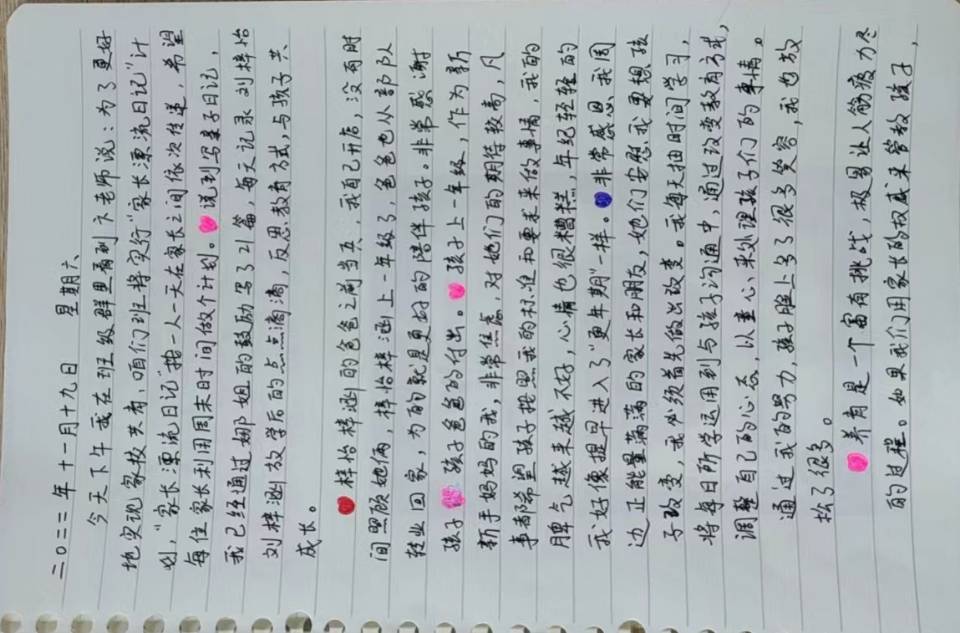 二〇二二年十一月十九日 星期六
今天下午我在班级群里看到卞老师说：为了更好
地实现家校共育，咱们班将实行“家长漂流日记”计
划，“家长漂流日记”按一人一天在家长之间依次传递，希望
每位家长利用周末时间做个计划。说到写亲子日记，
我已经通过娜姐的鼓励写了21篇，每天记录刘梓怡
刘梓涵放学后的点点滴滴，反思教育方式，与孩子共
成长。
梓怡梓涵的爸爸之前当兵，我自己开店，没有时
间照顾她俩，梓怡梓涵上一年级了，爸爸也从部队
转业回家，为的就是更好的陪伴孩子。非常感谢
孩子孩子爸爸的付出。孩子上一年级，作为新
新手妈妈的我，非常焦虑，对她们的期待较高，凡
事都希望孩子按照我的标准和要求来做事情，我的
脾气越来越不好，心情也很糟糕，年纪轻轻的
我好像提早进入了“更年期”一样。非常感恩，我周
边正能量满满的家长和朋友，她们安慰我要想孩
子改变，我必须首先做出改变。我每天抽时间学习，
将每日所学运用到与孩子沟通中，通过改变教育方式，
调整自己的心态，以童心来处理孩子们的事情。
通过我的努力，孩子脸上多了很多笑容，我也放
松了很多。
养育是一个富有挑战，极易让人筋疲力尽
的过程。如果我们用家长的权威来管教孩子，